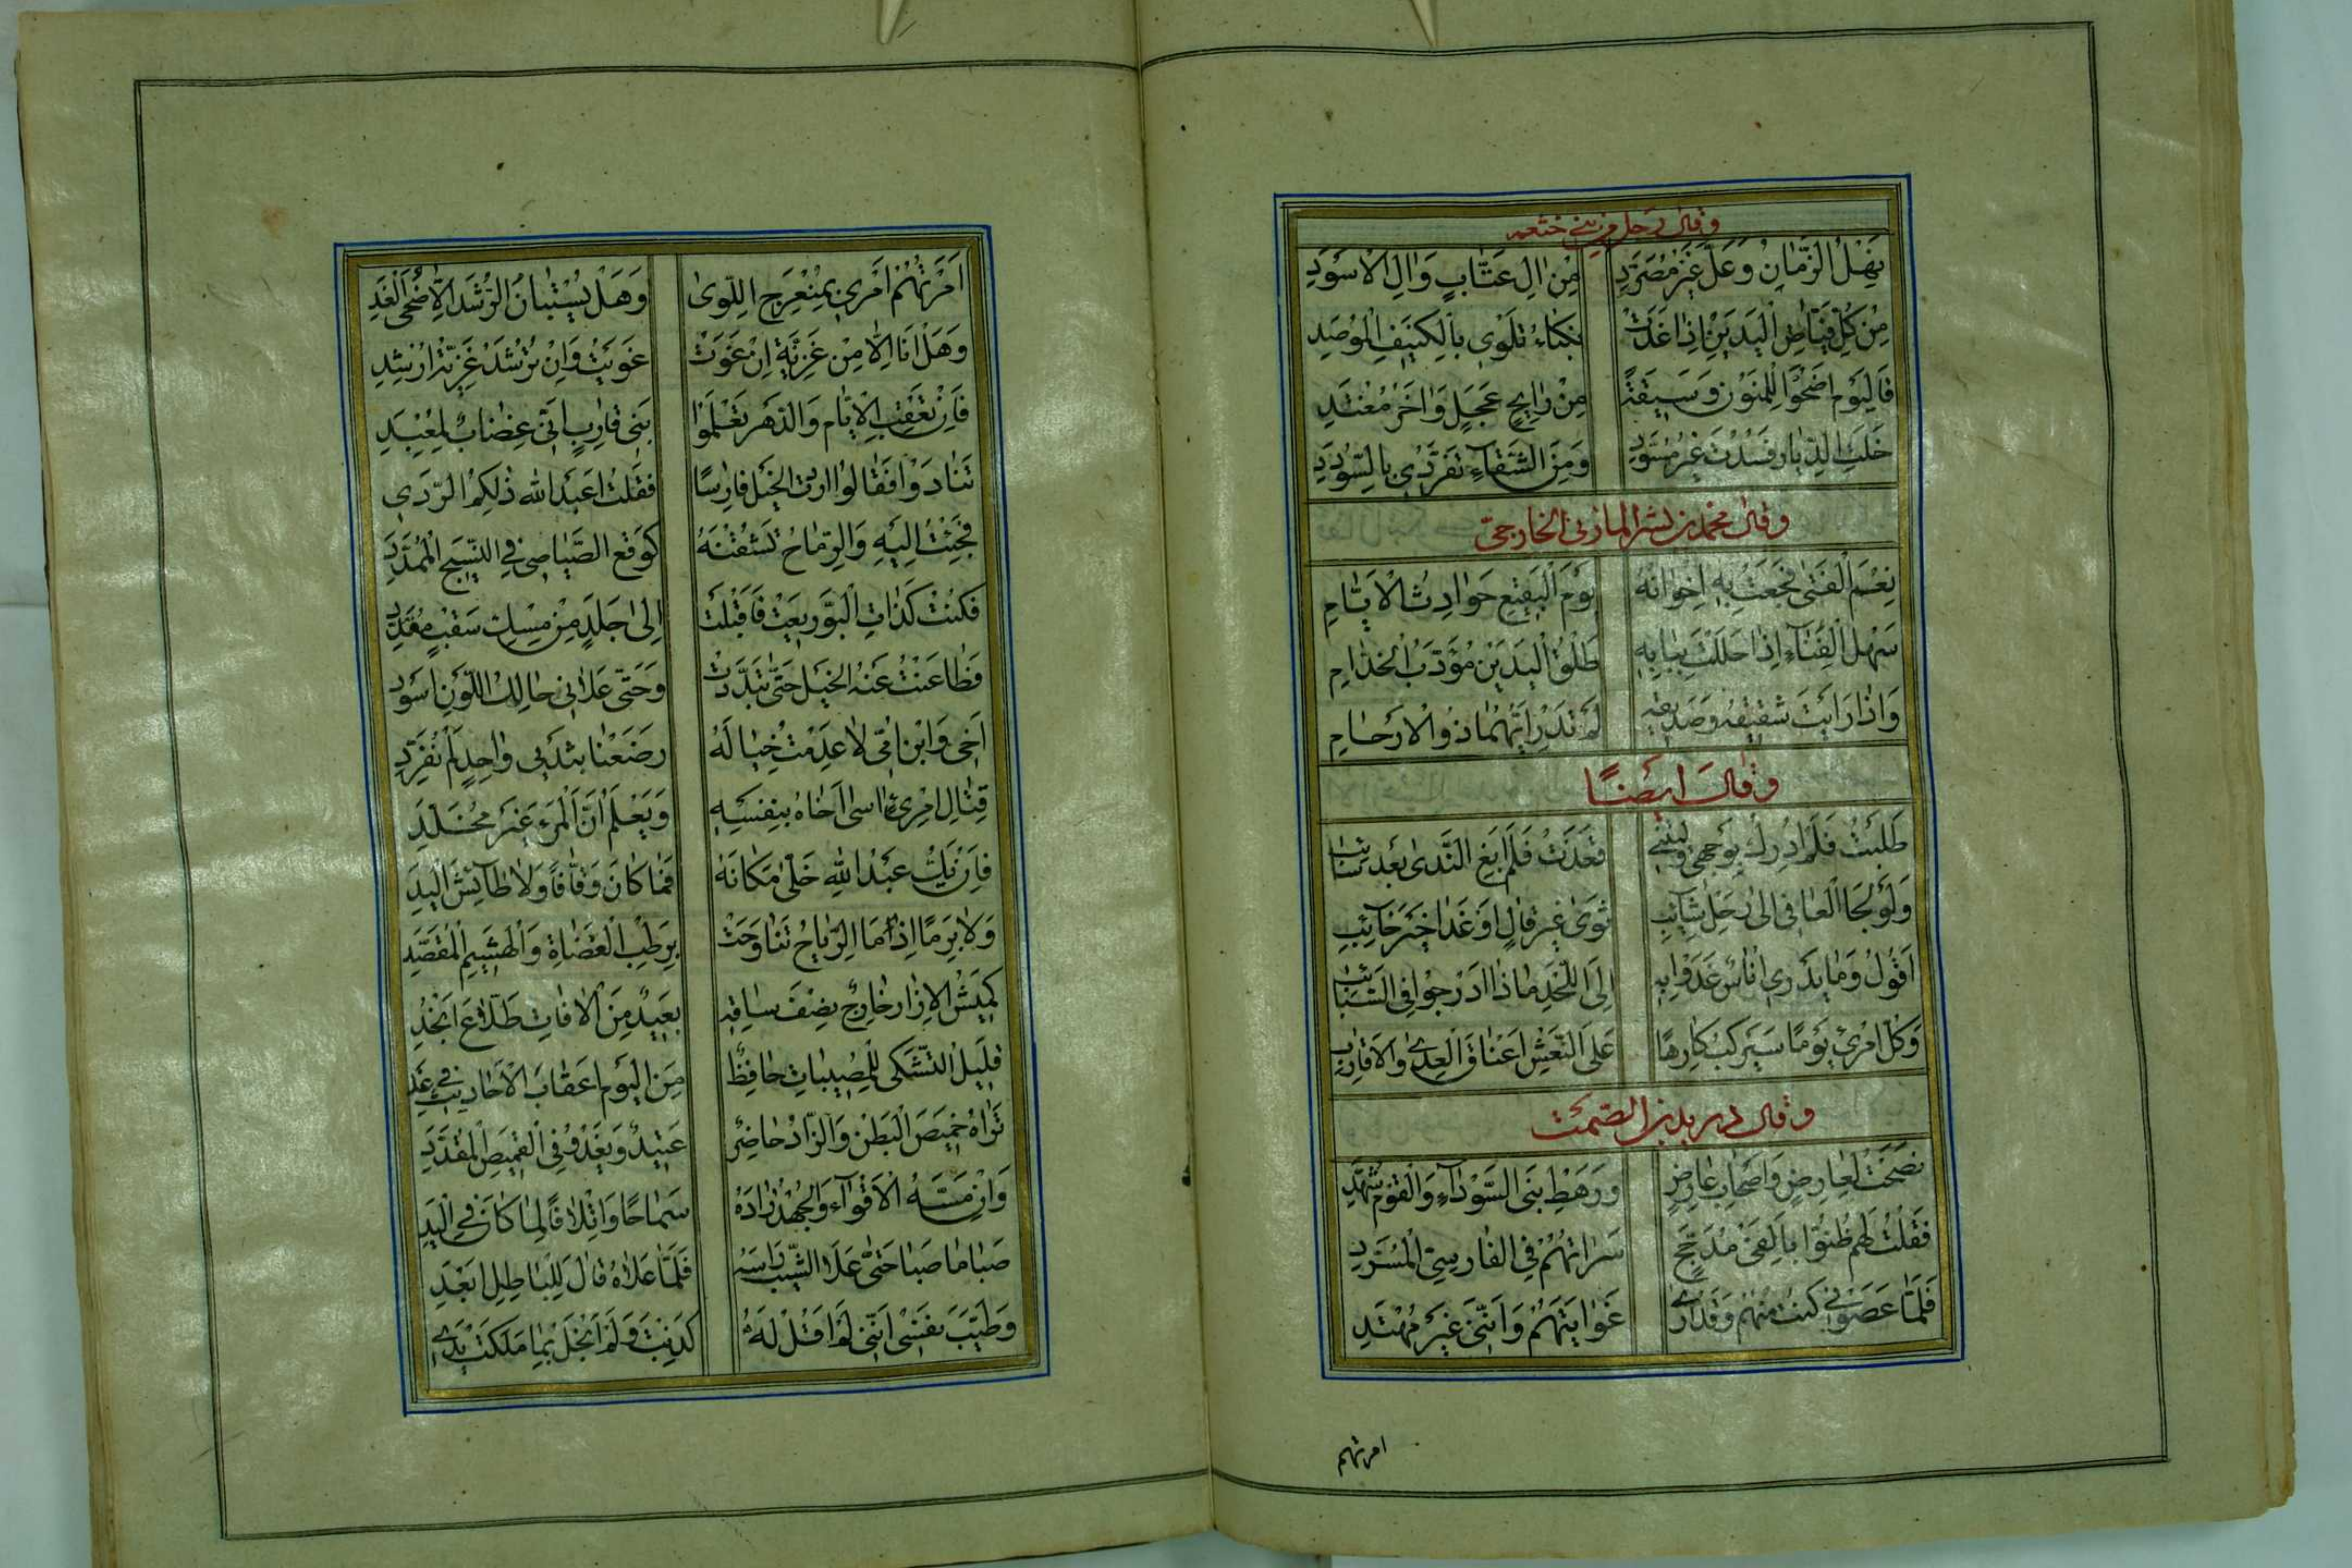 وقال رجل من بني خثعم
نهل الزمان وعل غير مصرد من ال عتاب وال الاسود
من كل فياض اليدين اذا غدت نكباء تلوي بالكنيف الموصد
فاليوم اضحوا للمنون وسيقة من رايح عجل واخر مغتد
خلت الديار فسدت غير مسود ومن الشقاء تفردي بالسودد
وقال محمد بن بشر المازني الخارجي
نعم الفتى فجعت به اخوانه يوم البقيع حوادث الايام
سهل الفناء اذا حللت ببابه طلق اليدين مؤدب الخدام
واذا رايت شقيقه وصديقه لم تدر ايهما ذوو الارحام
وقال ايضا
طلبت فلم ادرك بوجهي وليتني قعدت فلم ابغ الندى بعد سائب
ولو لجا العافي الى رحل سائب ثوى غير قال او غدا خير خائب
اقول وما يدري اناس غدوا به الى اللحد ماذا ادرجوا في السبائب
وكل امرئ يوما سيركب كارها على النعش اعناق العدى والاقارب
وقال دريد بن الصمت
نصحت لعارض واصحاب عارض ورهط بني السوداء والقوم شهد
فقلت لهم ظنوا بالفي مدجج سراتهم في الفارسي المسرد
فلما عصوني كنت منهم وقد ارى غوايتهم وانني غير مهتد
امرتهم
امرتهم امري بمنعرج اللوى وهل يستبان الرشد الا ضحى الغد
وهل انا الا من غزية ان غوت غويت وان ترشد غزية ارشد
فان تعقب الايام والدهر تعلموا بني قارب اني غضاب لمعبد
تنادوا فقالوا اردت الخيل فارسا فقلت اعبد الله ذلكم الردي
فجئت اليه والرماح تنشنه كوقع الصياصي في النسيج الممدد
فكنت كذات البو ريعت فاقبلت الى جلد من مسك سقب مقدد
فطاعنت عنه الخيل حتى تبددت وحتى علاني حالك اللون اسود
اخي وابن امي لا عدمت خياله رضعنا بثدي واحد لم نفرد
قتال امرئ اسى اخاه بنفسه ويعلم ان المرء غير مخلد
فان يك عبد الله خلى مكانه فما كان وقافا ولا طائش اليد
ولا برما اذا ما الرياح تناوحت برطب العضاة والهشيم المقصد
كميش الازار خارج نصف ساقه بعيد من الافات طلاع انجد
قليل التشكي للمصيبات حافظ من اليوم اعقاب الاحاديث في غد
تراه خميص البطن والزاد حاضر عتيد ويغدو في القميص المقدد
وان مسه الاقواء والجهد زاده سماحا واتلافا لما كان في اليد
صبا ما صبا حتى علا الشيب راسه فلما علاه قال للباطل ابعد
وطيب نفسي انني لم اقل له كذبت ولم ابخل بما ملكت يدي